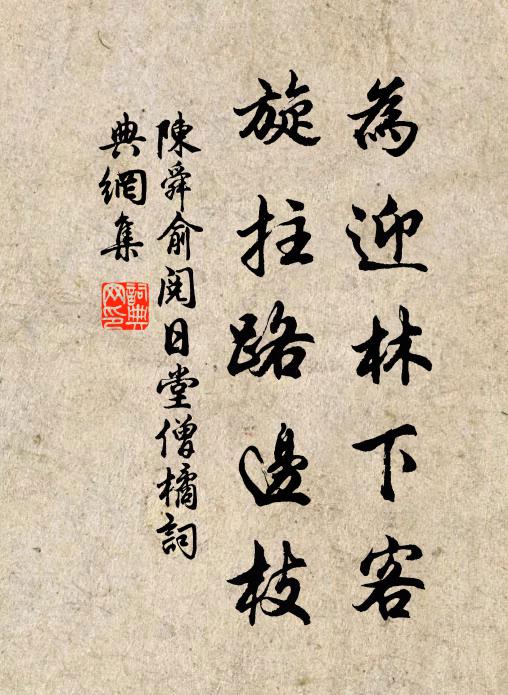 為迎林下客
旋拄路邊枝
陳舜俞閱日堂僧橘詞
典網集
詞典網印